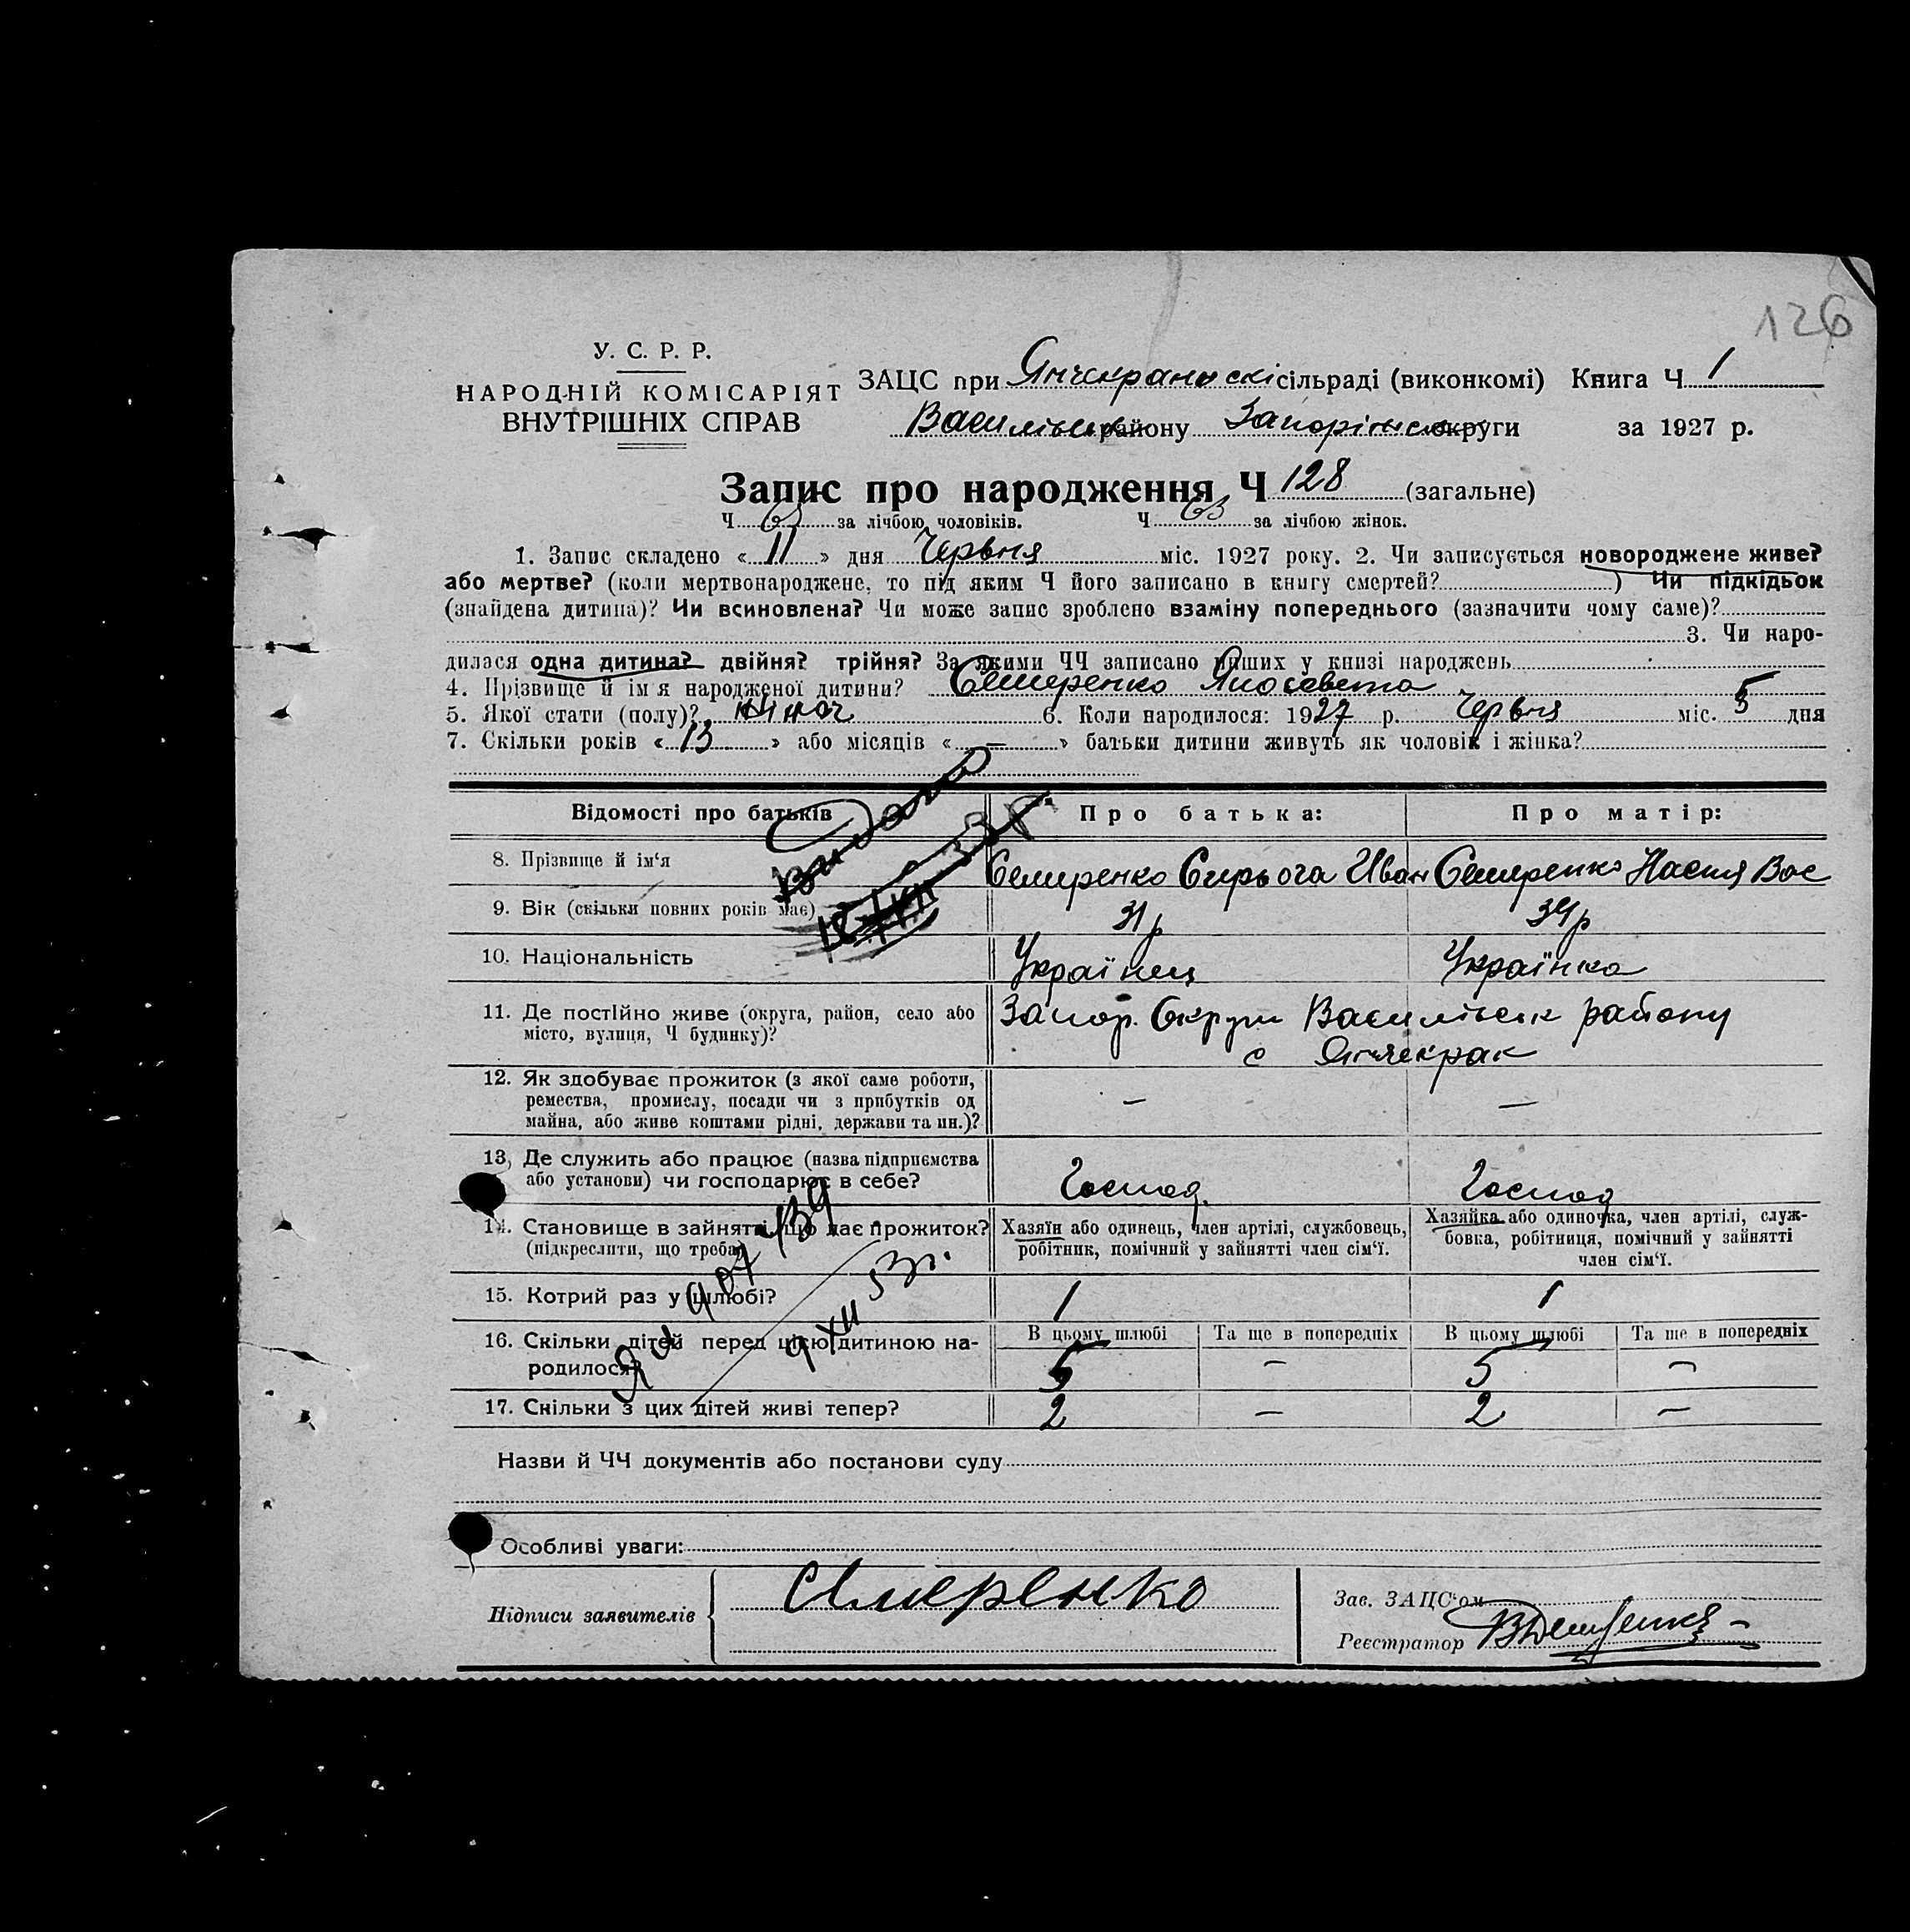 126
У. С. Р. Р.
НАРОДНІЙ КОМІСАРІЯТ
ВНУТРІШНІХ СПРАВ
ЗАЦС при Янчекраноскі сільраді (виконкомі) Книга Ч 1
Василівськ району Запоріжськ округи за 1927 р.
Запис про народження Ч 128 (загальне)
Ч 65 за лічбою чоловіків. Ч 63 за лічбою жінок.
1. Запис складено « 11 » дня Червня міс. 1927 року. 2. Чи записується новороджене живе?
або мертве? (коли мертвонароджене, то під яким Ч його записано в книгу смертей? ) Чи підкідьок
(знайдена дитина)? Чи всиновлена? Чи може запис зроблено взаміну попереднього (зазначити чому саме)?
3. Чи наро-
дилася одна дитина? двійня? трійня? За якими ЧЧ записано инших у книзі народжень
4. Прізвище й ім я народженої дитини? Семиренко Ялосевета
5. Якої стати (полу)? жіноч 6. Коли народилося: 1927 р. Червня міс. 5 дня
7. Скільки років « 13 » або місяців « — » батьки дитини живуть як чоловік і жінка?
Відомості про батьків Про батька: Про матір:
8. Прізвище й ім‘я Семиренко Сирьога Иван Семиренко Настя Вас
9. Вік (скільки повних років має) 31 р 34 р
10. Національність Українец Українка
11. Де постійно живе (округа, район, село або
місто, вулиця, Ч будинку)?
Запор. Округи Василівськ району
с Янчекрак
12. Як здобуває прожиток (з якої саме роботи,
ремества, промислу, посади чи з прибутків од
майна, або живе коштами рідні, держави та ин.)?
— —
13, Де служить або працює (назва підприємства
або установи) чи господарює в себе?
Господ. Господ
14. Становище в зайнятті, що дає прожиток?
(підкреслити, що треба)
Хазяїн або одинець, член артілі, службовець,
робітник, помічний у зайнятті член сім‘ї.
Хазяйка або одиночка, член артілі, служ-
бовка, робітниця, помічний у зайнятті
член сім‘ї.
15. Котрий раз у шлюбі? 1 1
16. Скільки дітей перед цією дитиною на-
родилося?
В цьому шлюбі Та ще в попередніх В цьому шлюбі Та ще в попередніх
5 — 5 —
17. Скільки з цих дітей живі тепер? 2 — 2 —
9 XII 53 г.
Назви й ЧЧ документів або постанови суду
Особливі уваги:
Підписи заявителів
Зав. ЗАЦС‘ом
Реєстратор